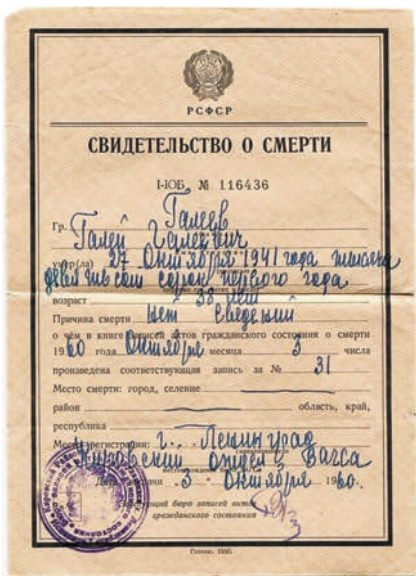 РСФСР
СВИДЕТЕЛЬСТВО О СМЕРТИ
I-ЮБ № 116436
Гр. Галеев
Галей Галеевич
умер(ла) 27 Октября 1941 года тысяча
девятьсот сорок первого года
возраст 38 лет
Причина смерти Нет сведений
о чём в книге записей актов гражданского состояния о смерти
1960 года Октября месяца 3 числа
произведена соответствующая запись за № 31
Место смерти: город, селение
район область, край,
республика
Место регистрации: г. Ленинград
Кировский отдел Загса
Дата выдачи 3 Октября 1960.
бюро записей актов
гражданского состояния
Гознак. 1950.